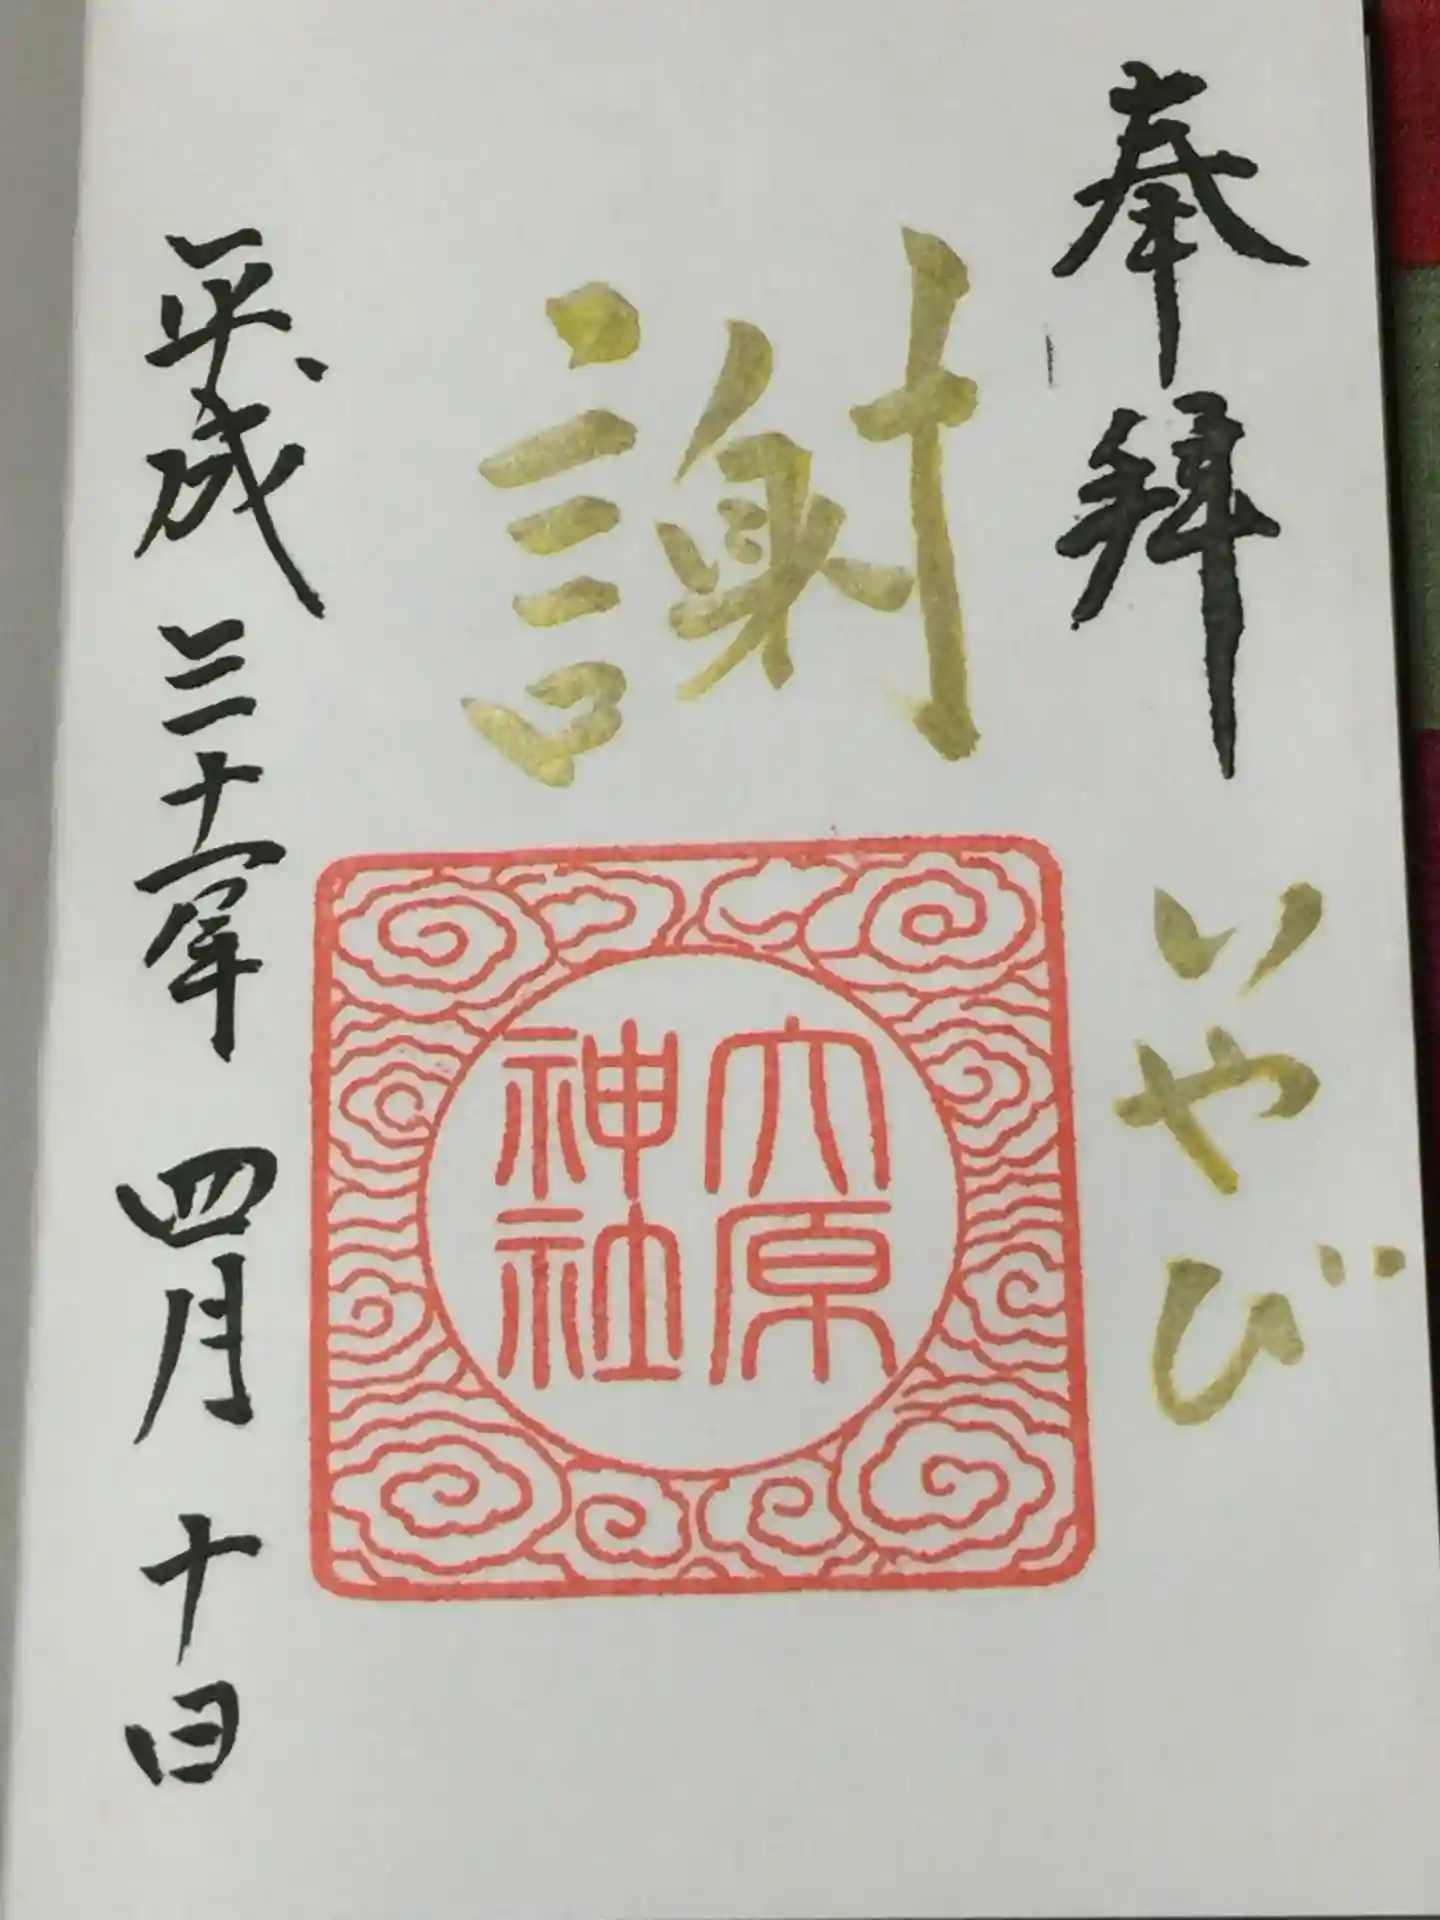 奉拝
いやび
謝
大原
神社
平成三十一年四月十日